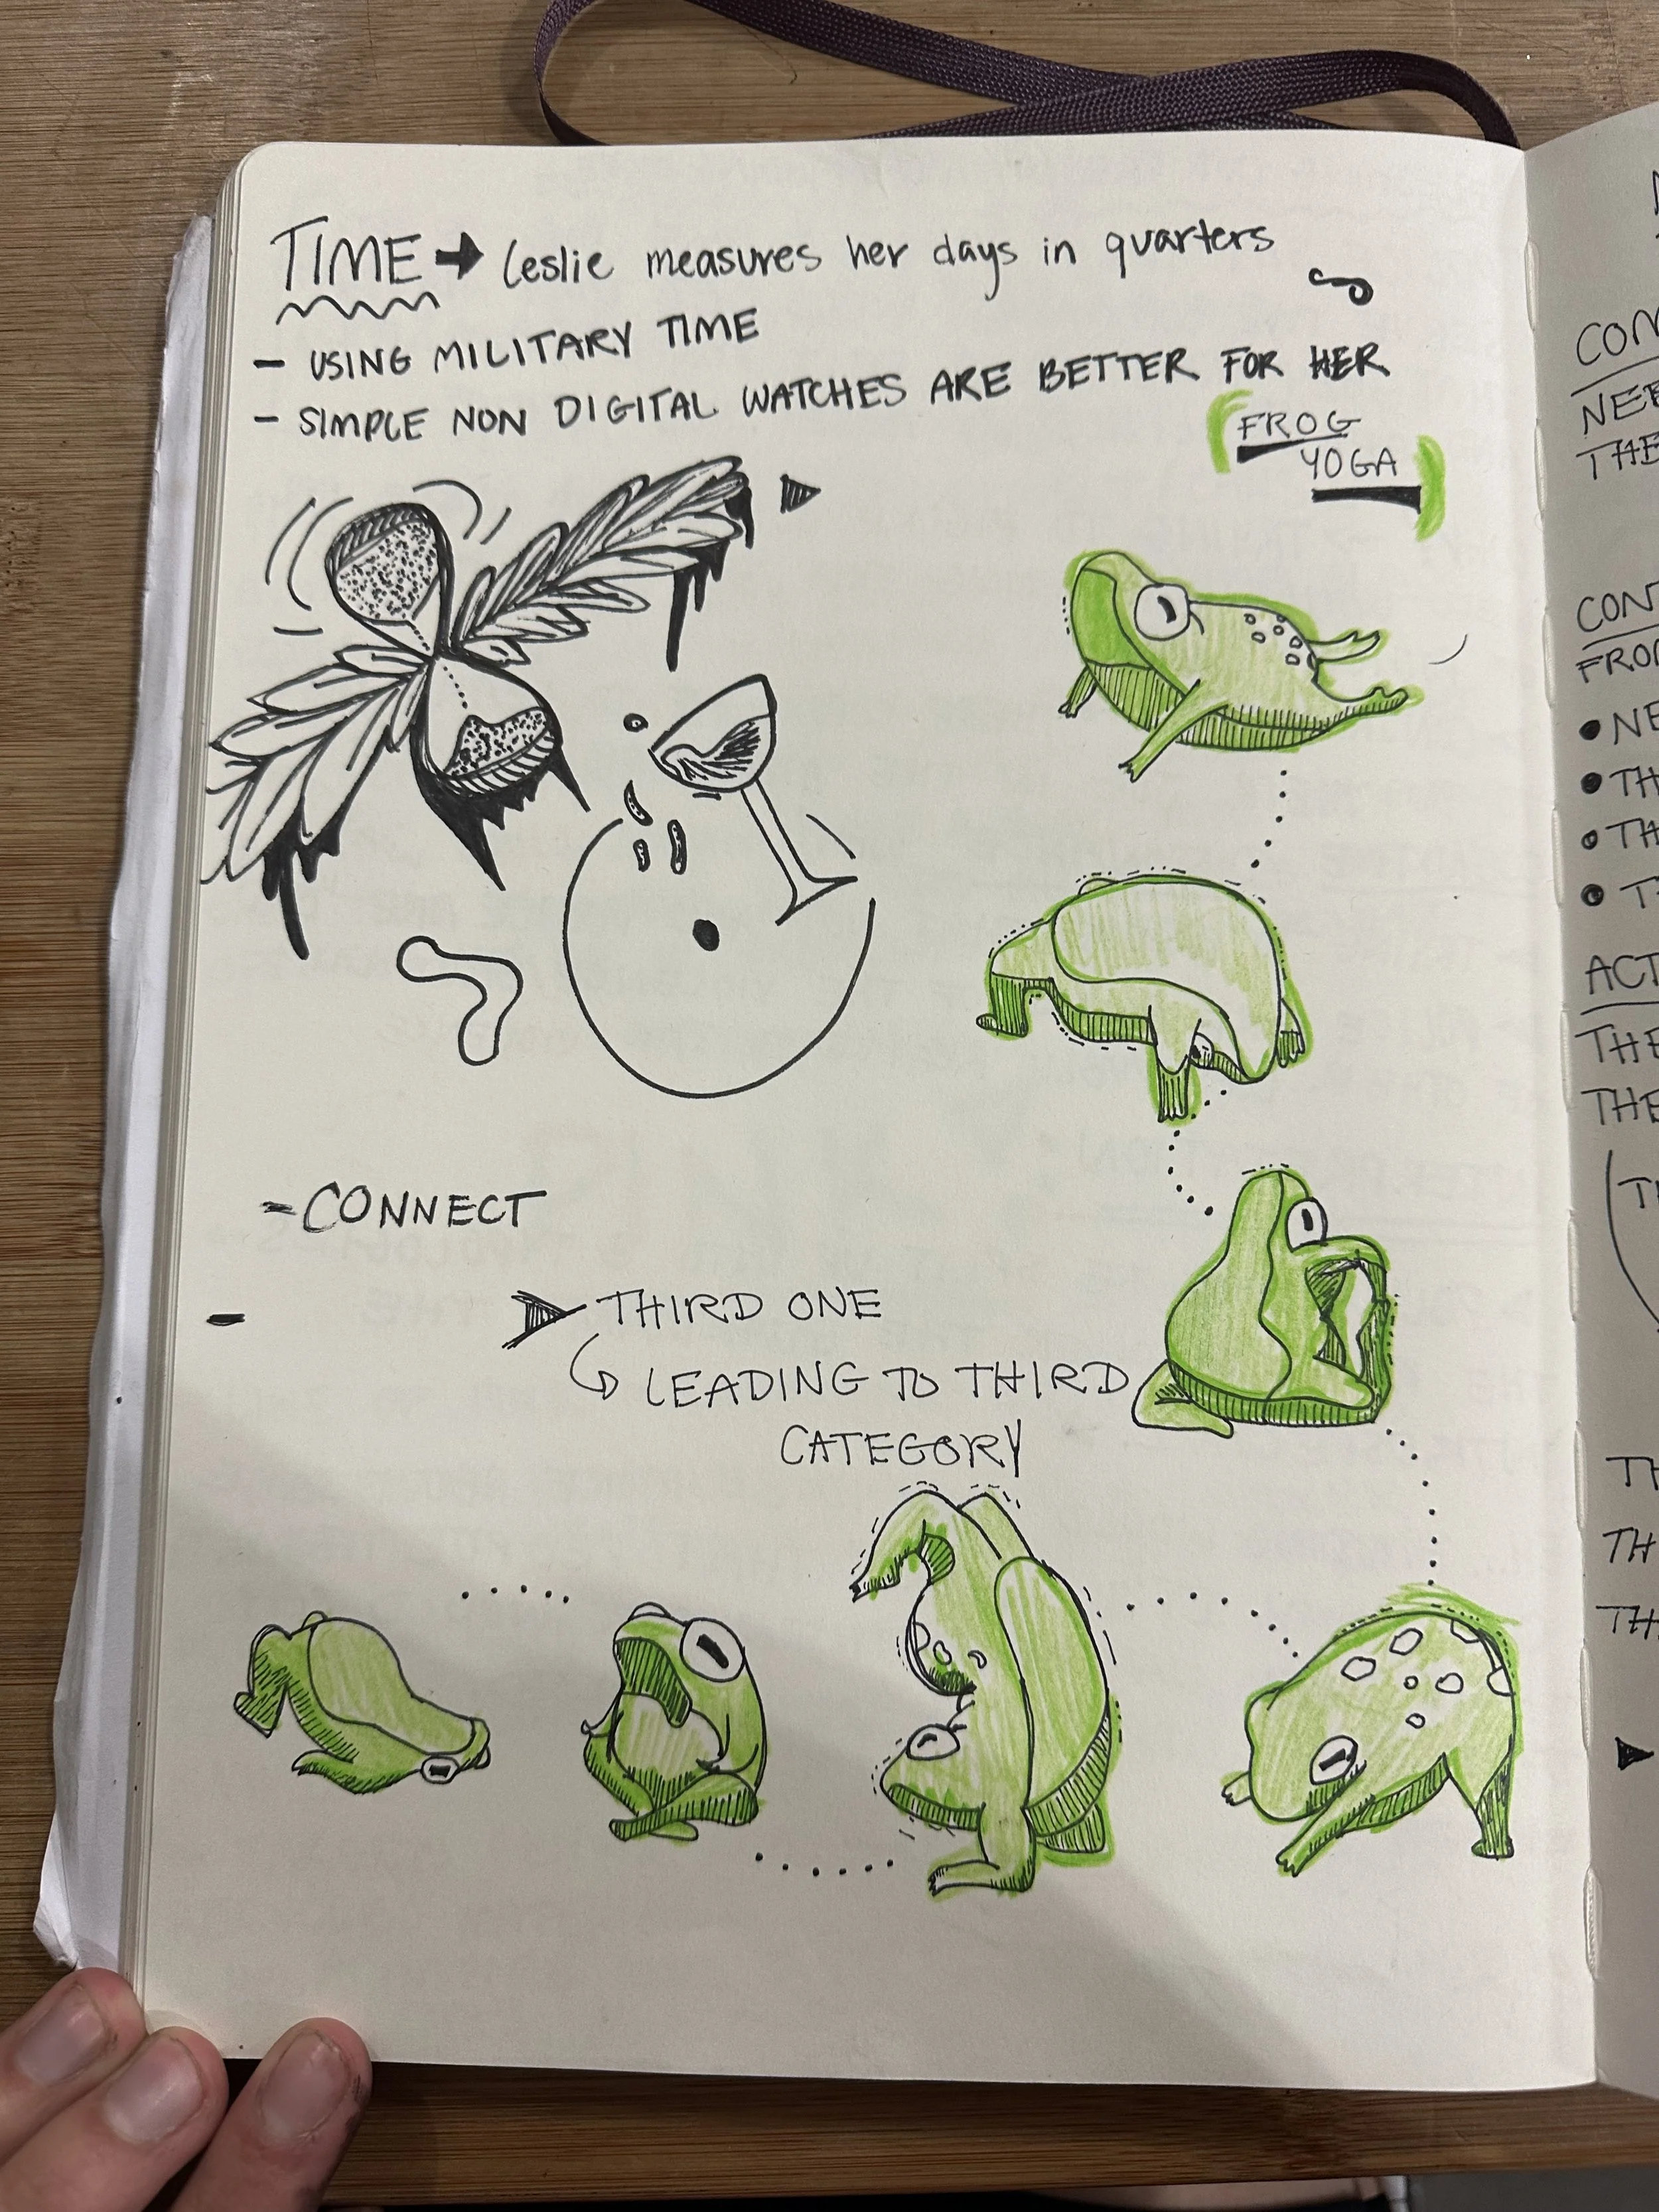 TIME → Leslie measures her days in quarters
- USING MILITARY TIME
- SIMPLE NON DIGITAL WATCHES ARE BETTER FOR HER
FROG
YOGA
- CONNECT
-
THIRD ONE
LEADING TO THIRD
CATEGORY
CON
NEE
THE
CON
FRO
• NE
• TH
• TH
• T
ACT
THE
THE
T
TH
TH
TH